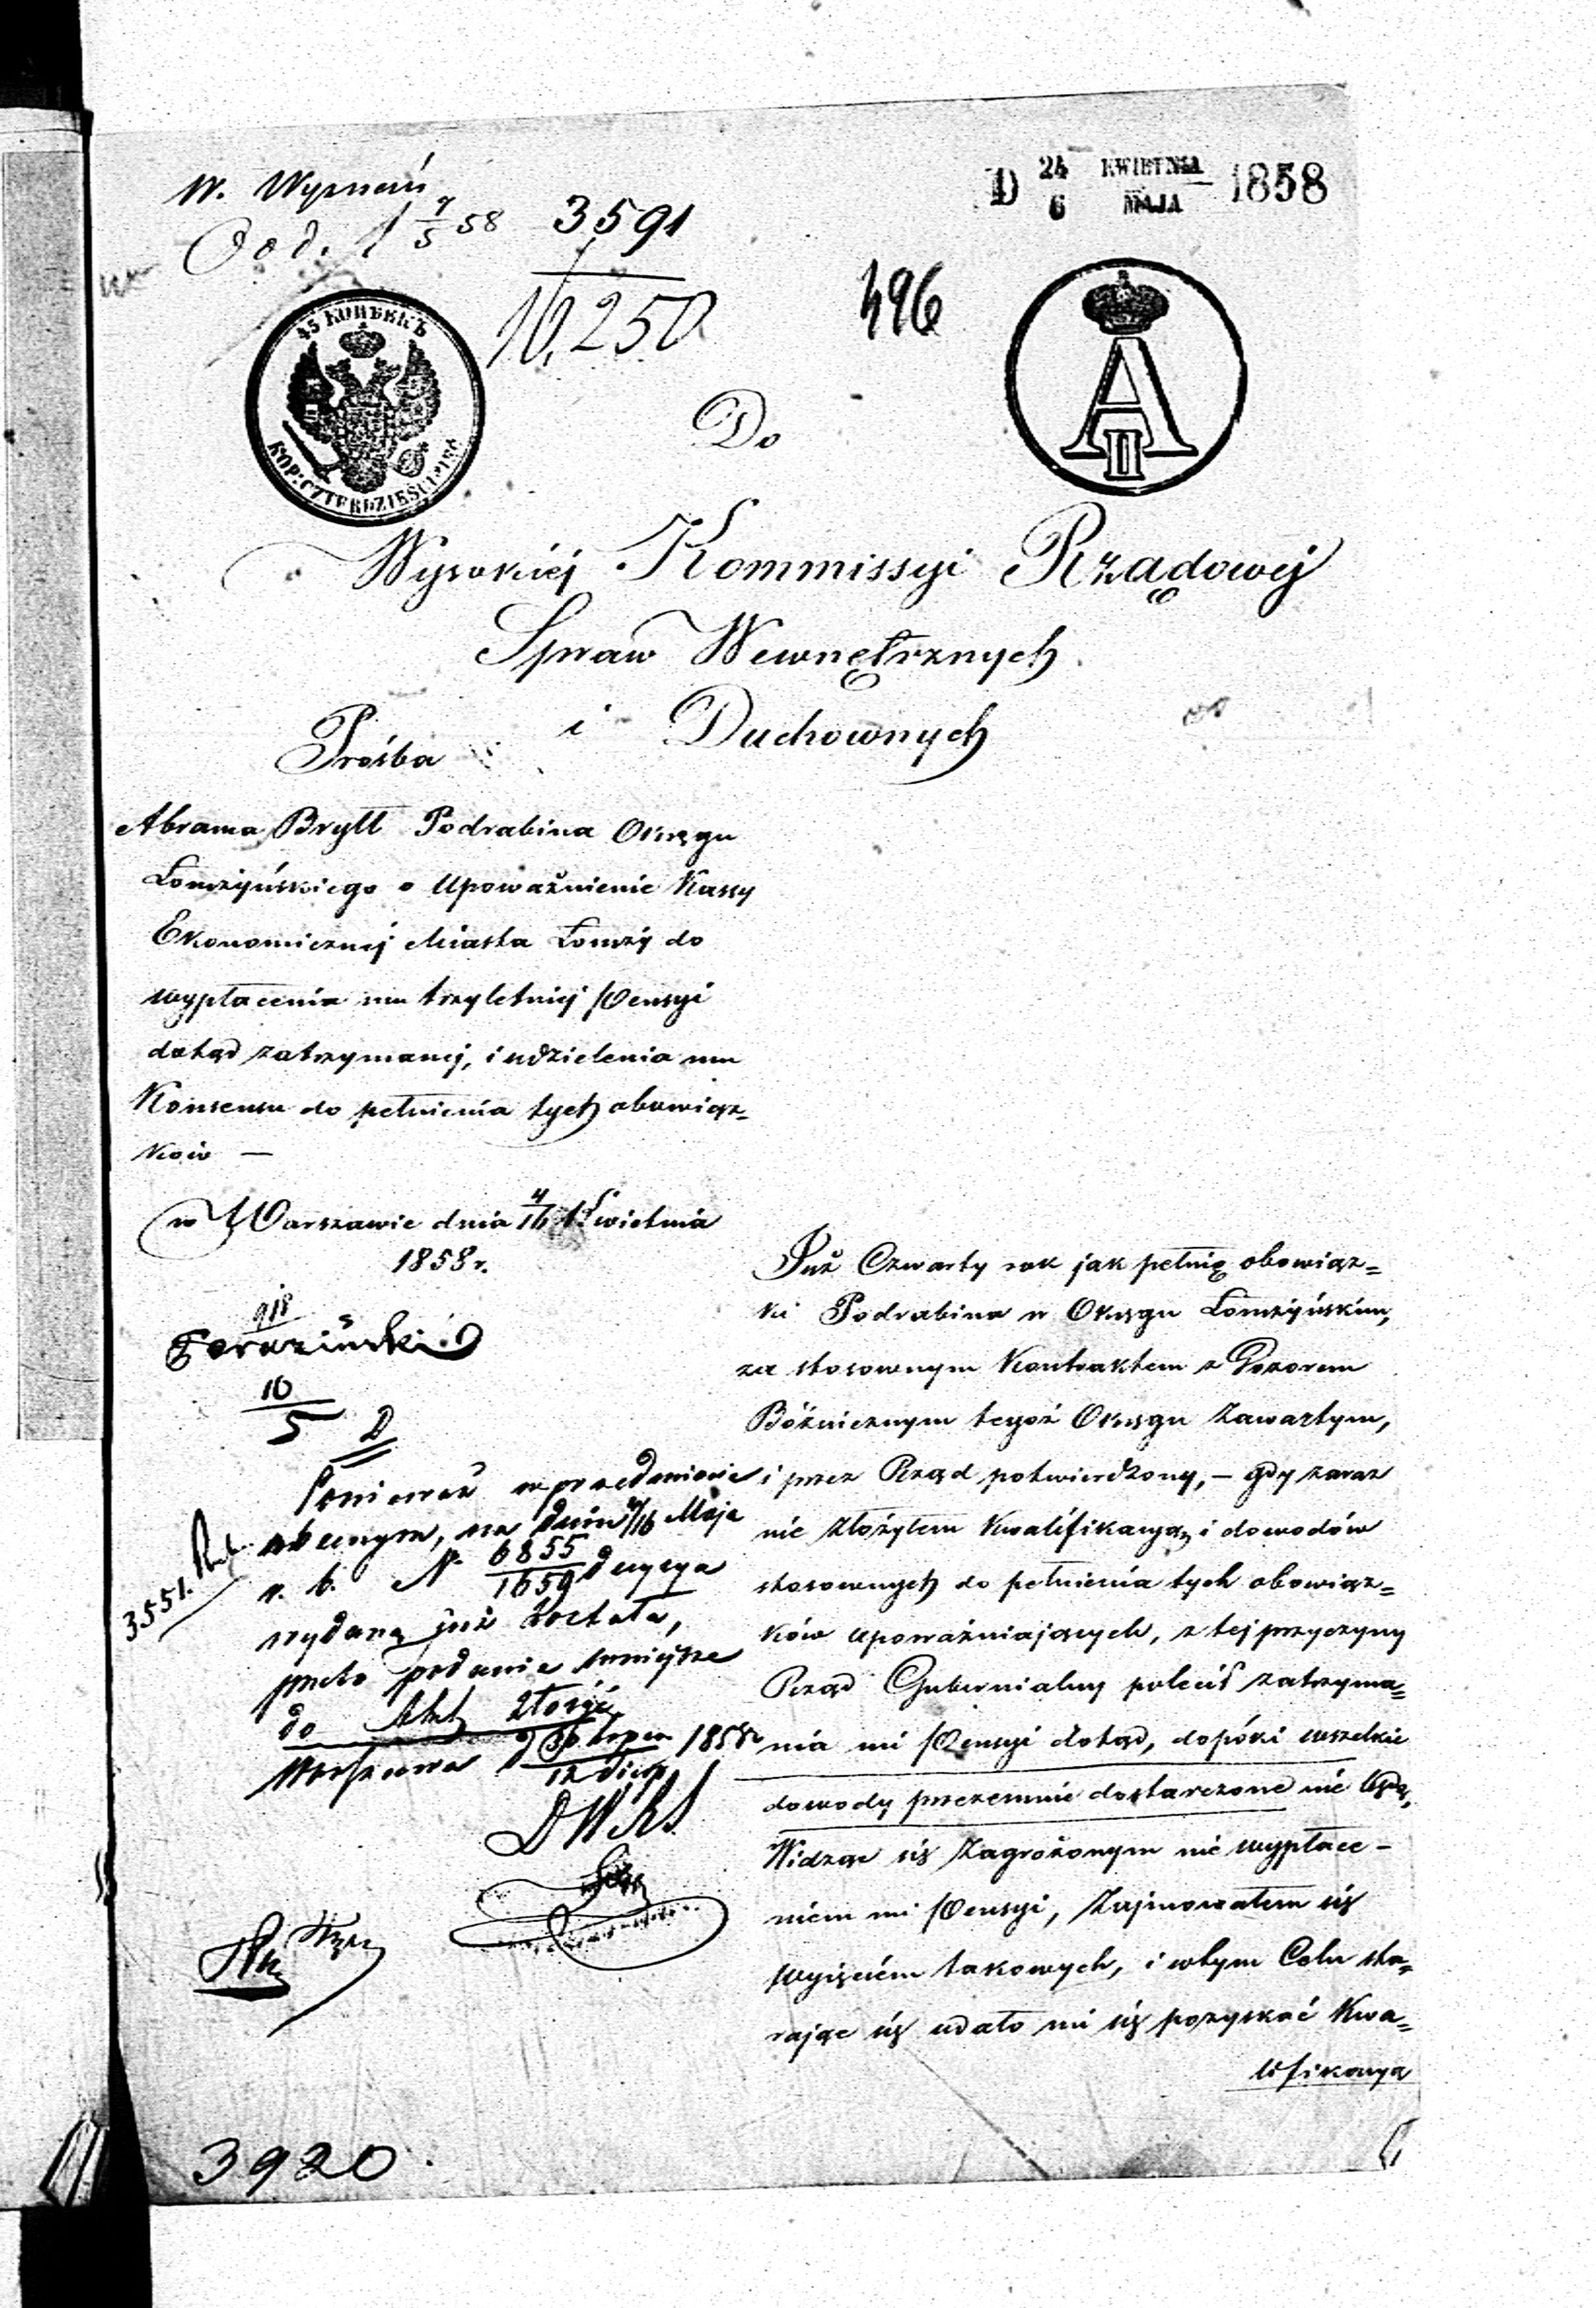 W. Wyznań
3591
16,250
D 24 KWIETNIA 1858
6 MAJA
496
45 КОПѢЕКЪ
KOP: CZTERDZIEŚCI PIĘĆ
A II
Do
Wysokiéj Kommissyi Rządowéj
Spraw Wewnętrznych
i Duchownych
Prośba
Abrama Brytt Podrabina Okręgu
Łomżyńskiego o Upoważnienie Kassy
Ekonomicznéj Miasta Łomży do
wypłacenia mu trzyletniéj Pensyi
dotąd zatrzymanéj, i udzielenia mu
Konsensu do pełnienia tych obowiąz-
ków —
w Warszawie dnia 4/16 Kwietnia
1858 r.
10/5 D
Ponieważ w przedmiocie
obecnym, na dniu 4/16 Maja
r. b. N. 6855/1659 decyzya
wydaną już została,
przeto podanie niniejsze
do Akt złożyć
Warszawa d 1858
DWRS
3551.
3920
Już Czwarty rok jak pełnię obowiąz=
ki Podrabina w Okręgu Łomżyńskim,
za stosownym Kontraktem z Dozorem
Bóżnicznym tegoż Okręgu Zawartym,
i przez Rząd potwierdzony, — gdy zaraz
nie złożyłem Kwalifikacyą, i dowodów
stosownych do pełnienia tych obowiąz=
ków upoważniających, z tej przyczyny
Rząd Gubernialny polecił zatrzyma=
nia mi Pensyi dotąd, dopóki wszelkie
dowody przezemnie dostarczone nie będą,
Widząc się Zagrożonym nie wypłace-
niem mi Pensyi, Zajmowałem się
wyjęciem takowych, i w tym Celu sta=
rając się udało mi się pozyskać Kwa=
lifikacyą